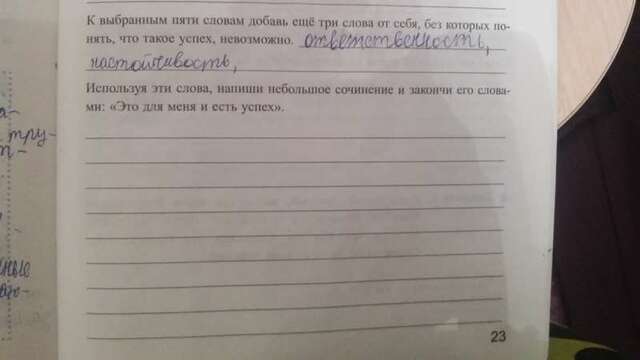 К выбранным пяти словам добавь ещё три слова от себя, без которых по-
нять, что такое успех, невозможно. ответственность,
настойчивость,
Используя эти слова, напиши небольшое сочинение и закончи его слова-
ми: «Это для меня и есть успех».
тру-
23